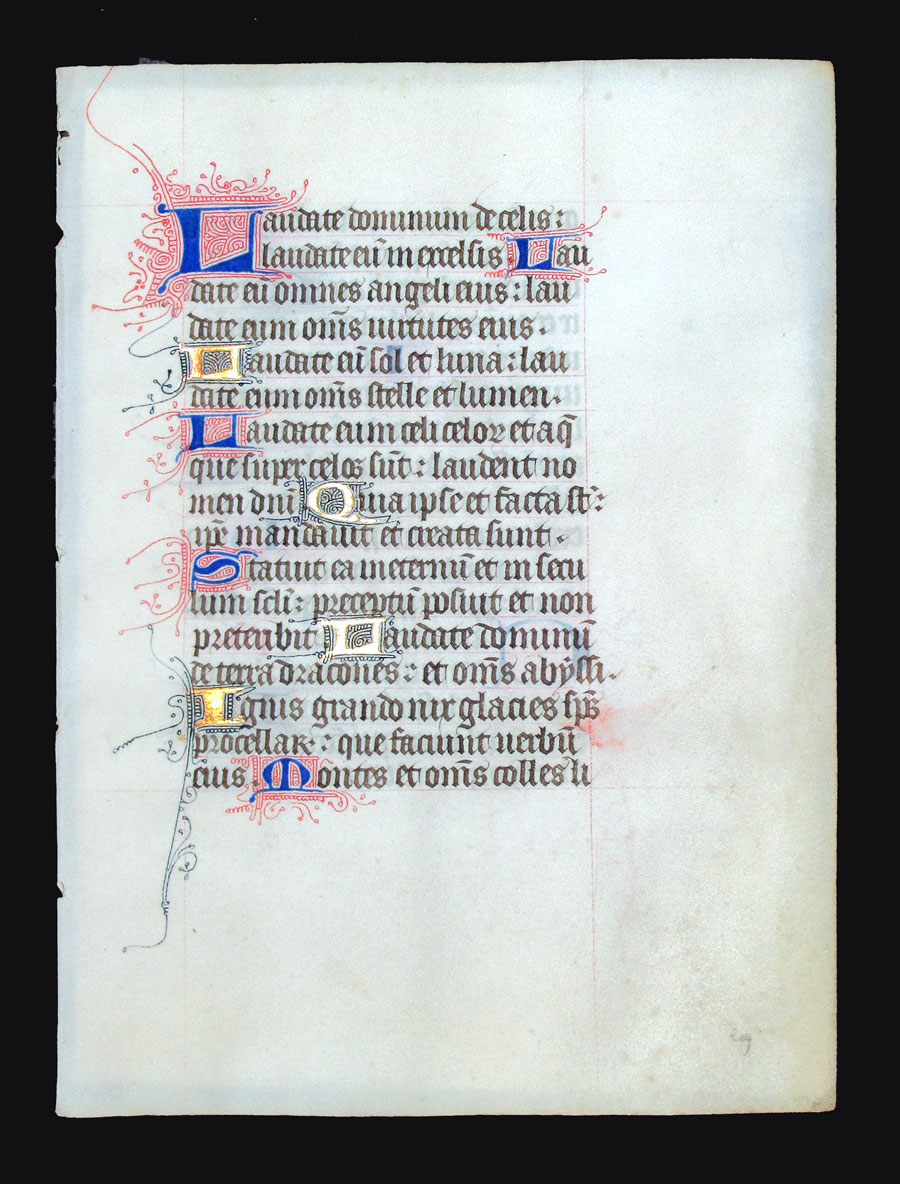 Laudate dominum de celis :
laudate eū in excelsis . Lau
date eū omnes angeli eius : lau
date eum om̄s uirtutes eius .
Laudate eū sol et luna : lau
date eum om̄s stelle et lumen .
Laudate eum celi celoꝝ et aq̄
que super celos sūt : laudent no
men dn̄i Quia ipse et facta st̄ :
ip̄e mandauit et creata sunt .
Statuit ea in eternū et in secu
lum scl̄i : preceptū posuit et non
preteribit . Laudate dominū
de terra dracones : et om̄s abẏssi .
Ignis grando nix glacies sp̄s
procellaꝝ : que faciunt uerbū
eius . Montes et om̄s colles li